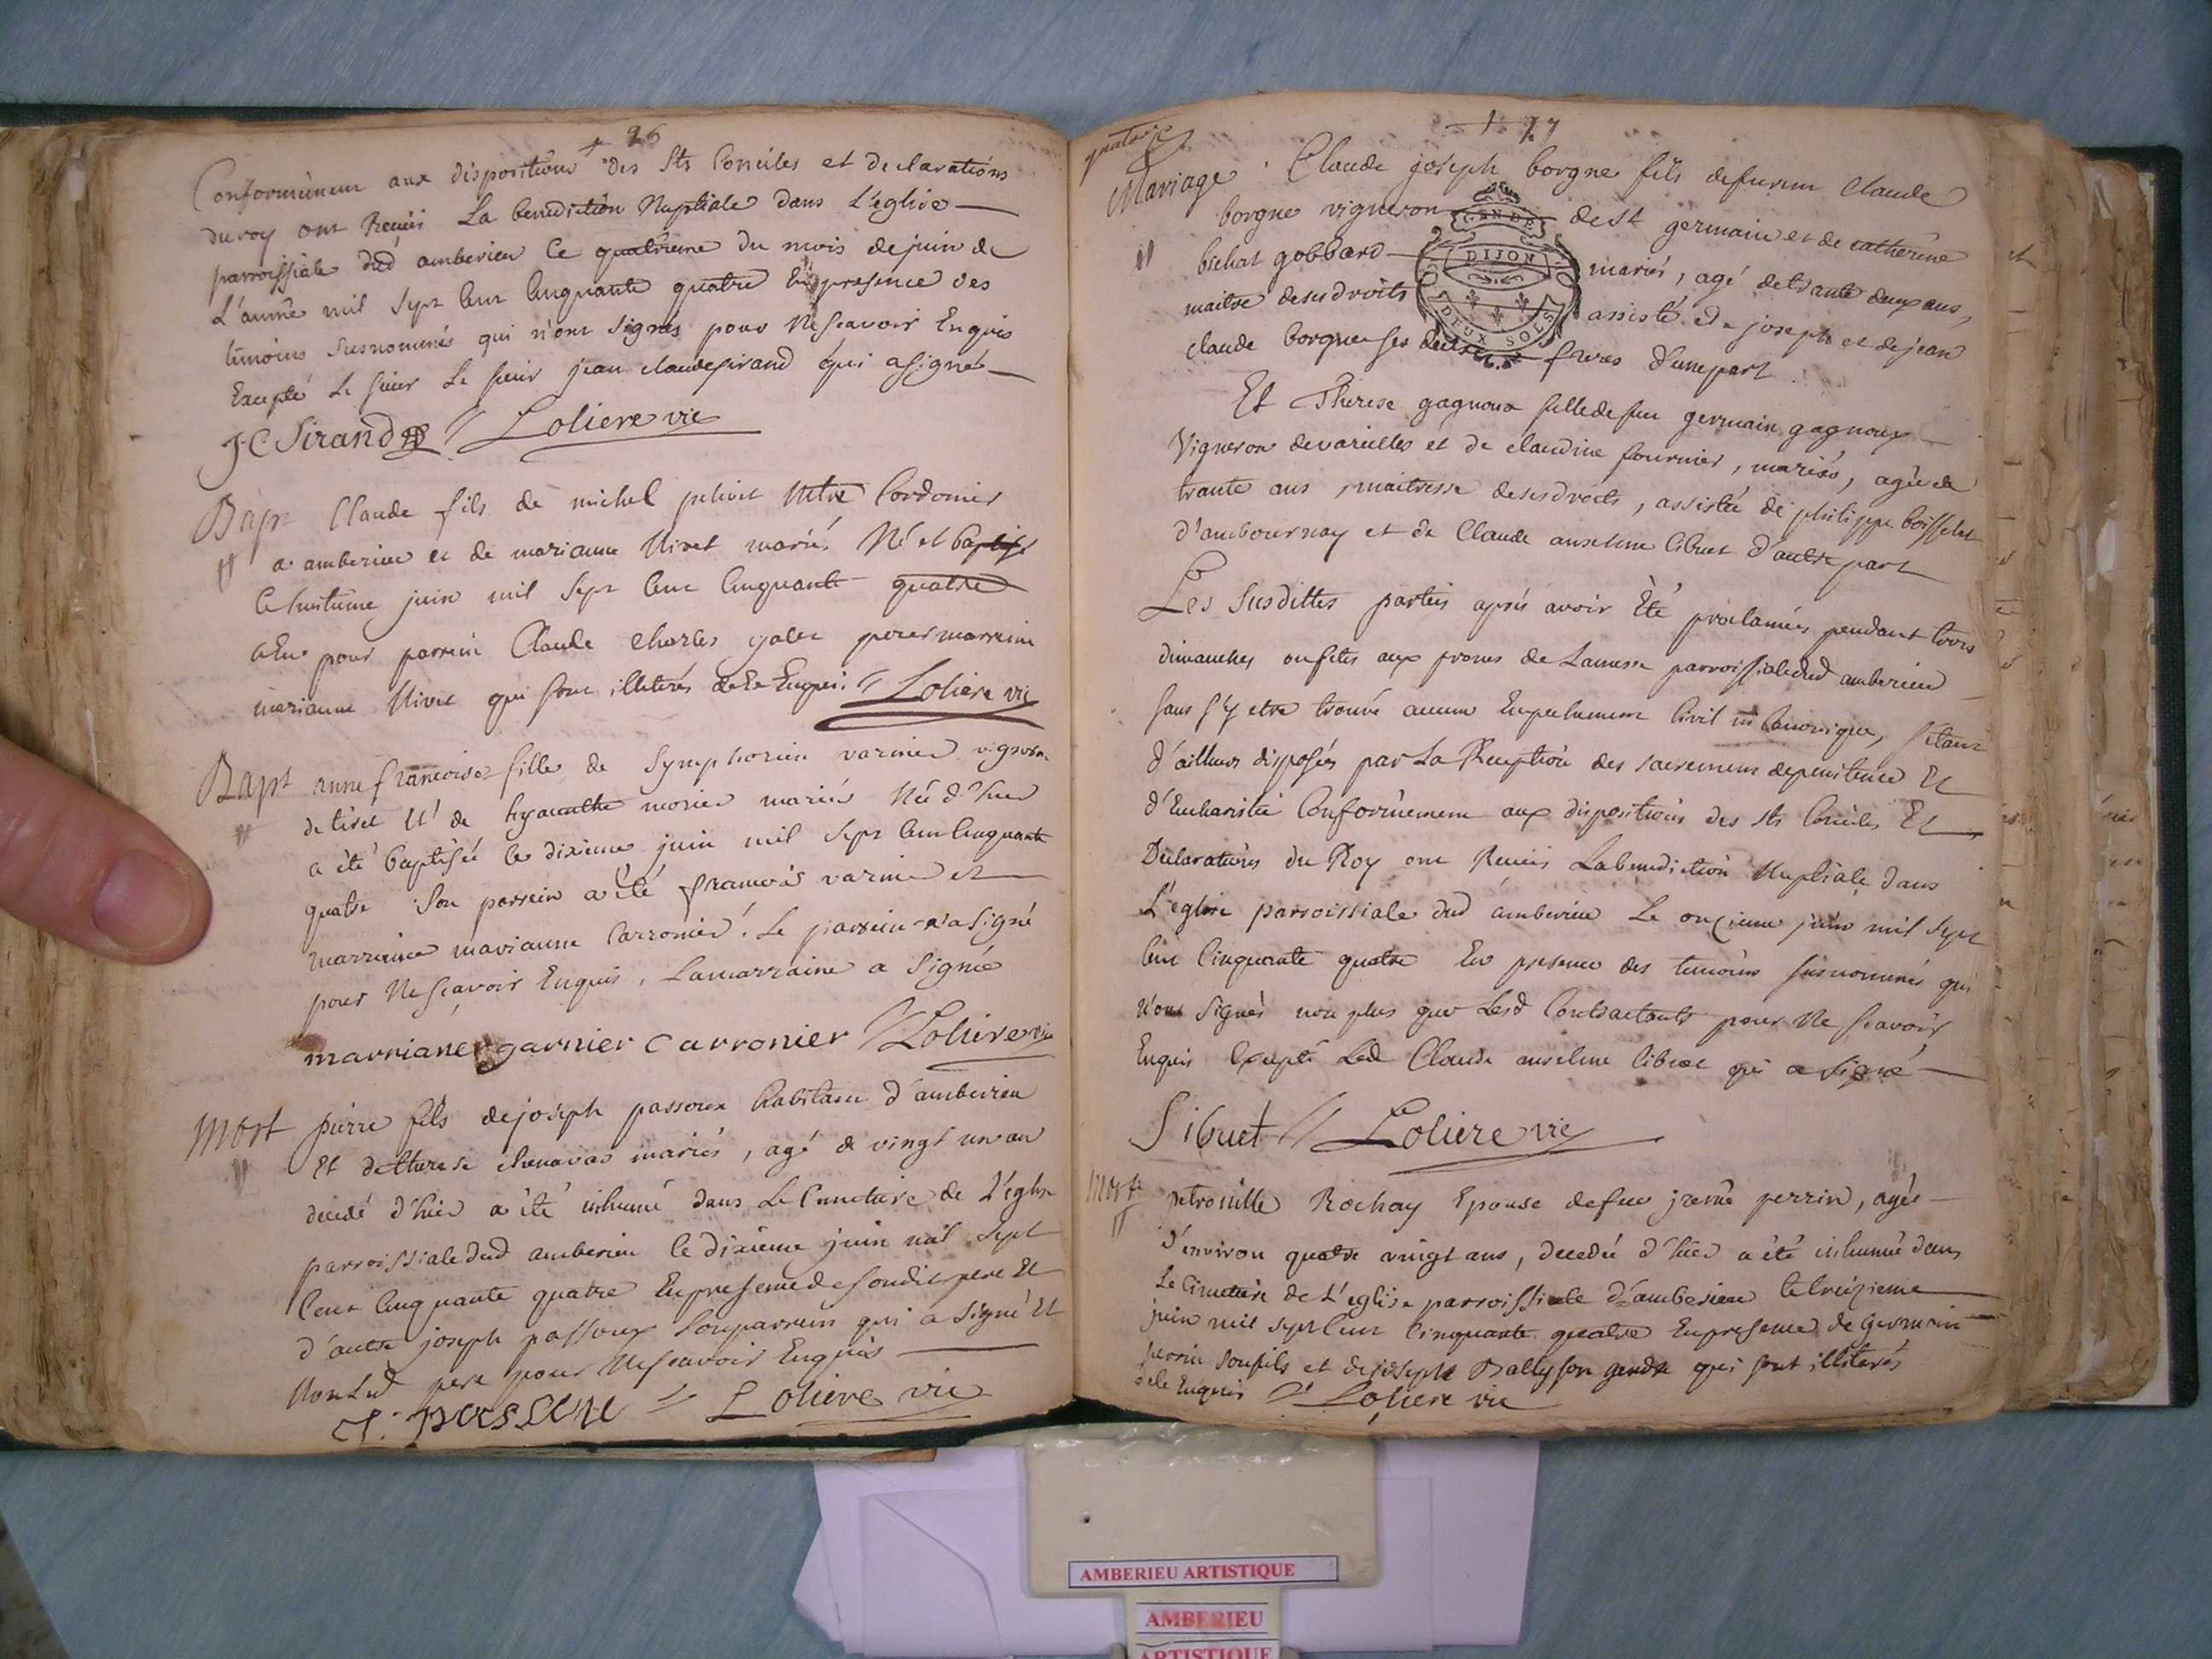 26
Conformement aux dispositions des Sts Conciles et declarations
du roy ont Receus La benediction Nuptiale dans L'église
parroissiale dud amberieu le quatrieme du mois de juin de
L'année mil sept Cent Cinquante quatre En presence des
temoins susnommés qui n'ont signés pour Ne scavoir Enquis
Excepté Le sieur Le sieur jean claude sirand qui a signé
J C Sirand Loliere vic
Bapt Claude fils de michel Mtre Cordonier
a amberieu et de marianne Nivet mariés Né et baptisé
le huitieme juin mil sept Cent Cinquante quatre
a Eu pour parrein Claude Charles et pour marreine
marianne Nivet qui sont illeterés de Ce Enquis. Loliere vic
Bapt anne francoise fille de Symphorien varinier vigneron
de tiret Et de hyacinthe monier mariés Née d'hier
a été baptisée le dixieme juin mil sept Cent Cinquante
quatre Son parrein a été francois varinier et
marreine marianne Carronier. Le parrein n'a signé
pour Ne scavoir Enquis, La marraine a signée
marriane garnier carronier Loliere vic
Mort pierre fils de joseph passoux habitant d'amberieu
Et de therese chenavas mariés, agé de vingt un an
decedé d'hier a été inhumé dans Le Cimetiere de L'eglise
parroissiale dud amberieu le dixieme juin mil sept
Cent Cinquante quatre En presence de sondit pere Et
d'autre joseph passoux Son parrein qui a signé Et
Non Led pere pour Ne scavoir Enquis
J. Loliere vic
quatorze
Mariage Claude joseph borgne fils de feu Claude
borgne vigneron de st germain et de catherine
bichat gobbard mariés, agé de trante deux ans,
maitre de ses droits assisté de joseph et de jean
claude borgne ses deux freres d'une part.
GEN DE
DIJON
DEUX SOLS
Et Therese gagnoux fille de feu germain gagnoux
Vigneron de vareilles et de claudine fournier, mariés, agée de
trante ans, maitresse de ses droits, assistée de philippe boisselet
d'ambournay et de Claude anselme Sibuet d'autre part
Les Susdittes parties aprés avoir Eté proclamées pendant trois
dimanches ou fetes aux prones de La messe parroissiale dud amberieu
sans s'y etre trouvé aucun Empechement Civil ni Canonique, s'etant
d'ailleurs disposés par La Reception des sacremens de penitence Et
d'Eucharistie Conformement aux dispositions des Sts Conciles Et
Declarations du Roy ont Receus La benediction Nuptiale dans
L'eglise parroissiale dud amberieu Le onzieme juin mil sept
Cent Cinquante quatre En presence des temoins susnommés qui
n'ont signés non plus que Lesd Contractants pour Ne scavoir
Enquis Excepté Led Claude anselme Sibuet qui a signé
Sibuet Loliere vic
Mort petronille Rochay Epouse de feu perrin, agée
d'environ quatre vingt ans, decedée d'hier a été inhumée dans
Le Cimetiere de L'eglise parroissiale d'amberieu le treizieme
juin mil sept Cent Cinquante quatre En presence de Germain
perrin son fils et de joseph Bally son gendre qui sont illiterés
de Ce Enquis Loliere vic
AMBERIEU ARTISTIQUE
AMBERIEU
ARTISTIQUE